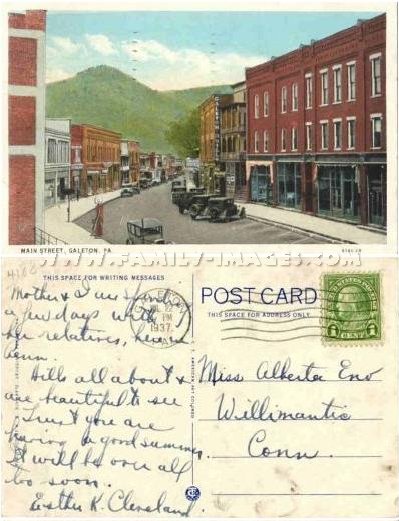 MAIN STREET, GALETON, PA.
WWW.FAMILY-IMAGES.COM
THIS SPACE FOR WRITING MESSAGES
Mother & I are spending
a few days with
her relatives, here in
Penn.
Hills all about &
are beautiful to see
Trust you are
having a good summer.
It will be over all
too soon.
Esther K. Cleveland.
1937
PM
POST CARD
THIS SPACE FOR ADDRESS ONLY
1 CENT 1
Miss Alberta Eno
Willimantic
Conn.